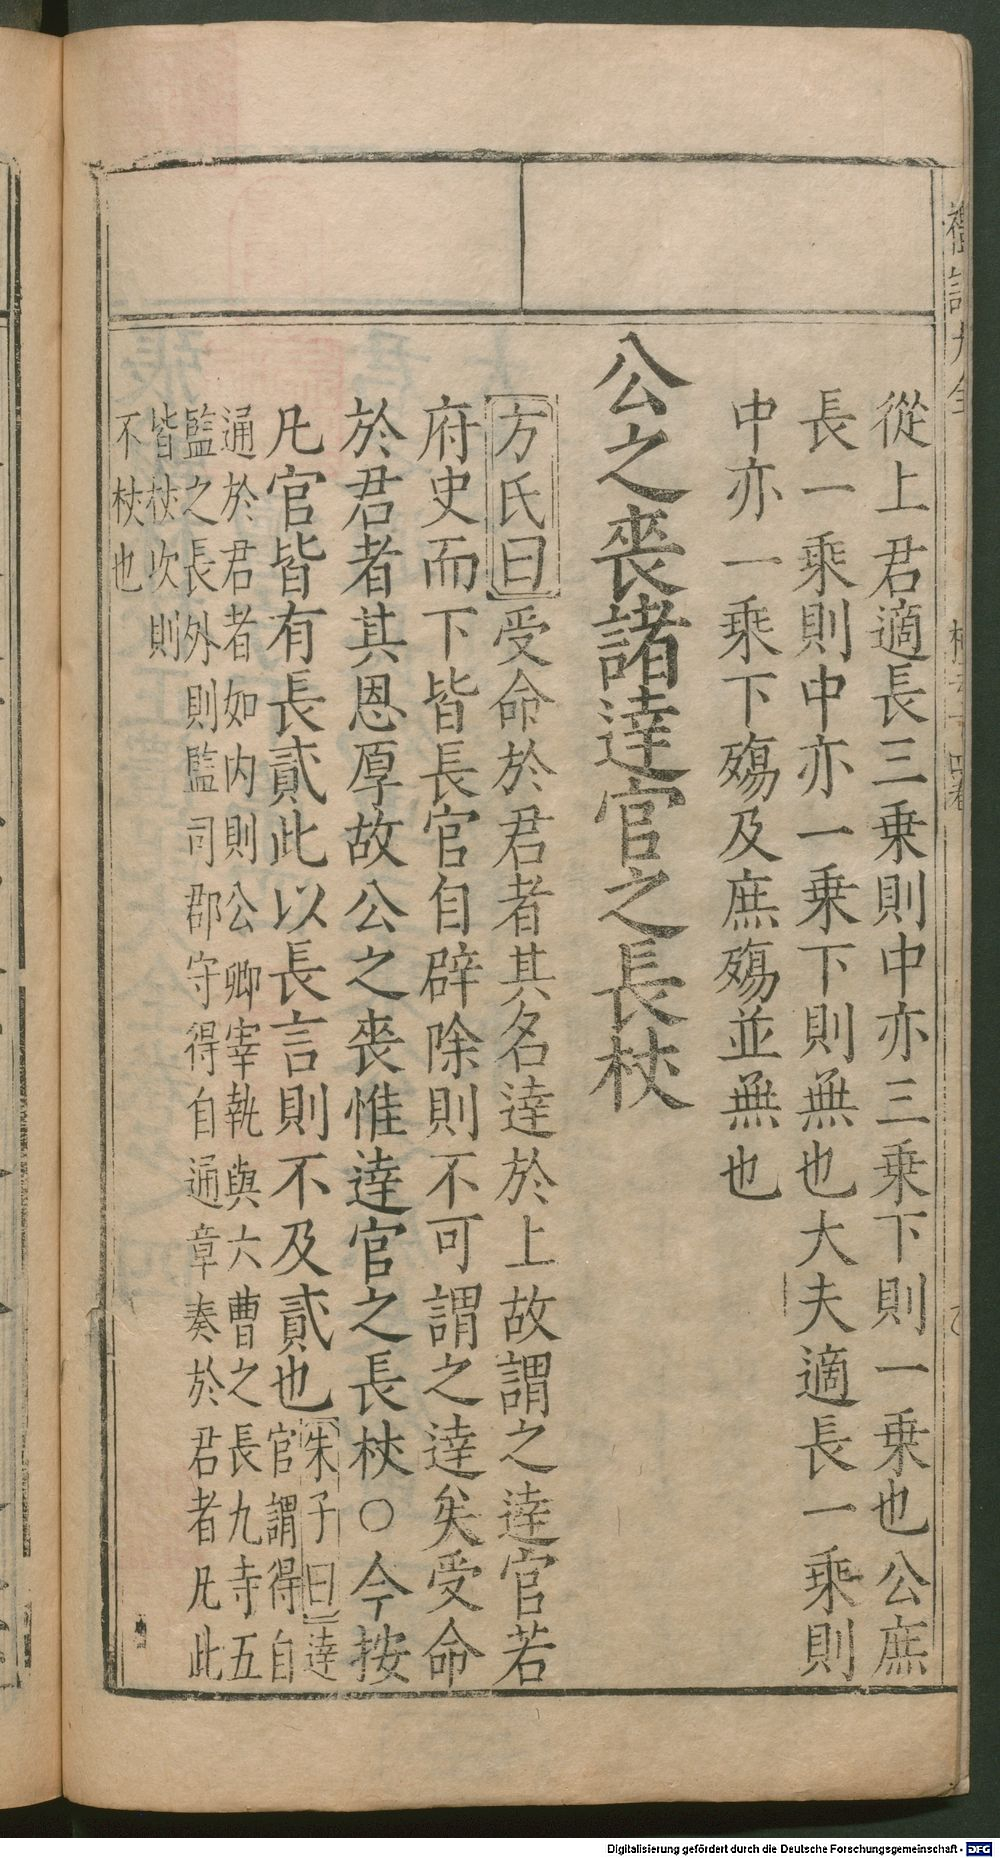 從上君適長三乗則中亦三乗下則一乗也公庶
長一乗則中亦一乗下則無也大夫適長一乗則
中亦一乗下殤及庶殤並無也
公之喪諸達官之長杖
方氏曰受命於君者其名達於上故謂之達官若
府史而下皆長官自辟除則不可謂之達矣受命
於君者其恩厚故公之喪惟達官之長杖○今按
凡官皆有長貳此以長言則不及貳也朱子曰達
官謂得自
通於君者如内則公卿宰執與六曹之長九寺五
監之長外則監司郡守得自通章奏於君者凡此
皆杖次則
不杖也
Digitalisierung gefördert durch die Deutsche Forschungsgemeinschaft - DFG